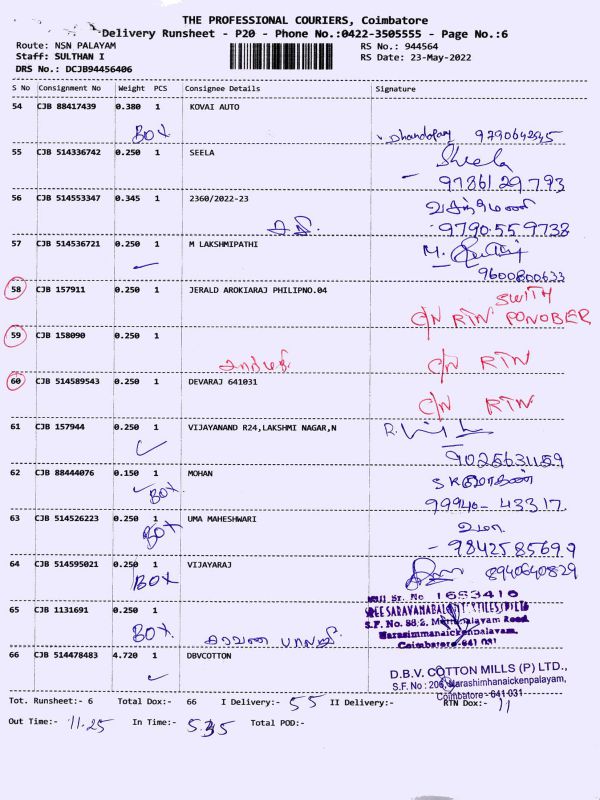 THE PROFESSIONAL COURIERS, Coimbatore
Delivery Runsheet - P20 - Phone No.:0422-3505555 - Page No.:6
Route: NSN PALAYAM RS No.: 944564
Staff: SULTHAN I RS Date: 23-May-2022
DRS No.: DCJB94456406
S No Consignment No Weight PCS Consignee Details Signature
54 CJB 88417439 0.380 1 KOVAI AUTO
BOX 9790642545
55 CJB 514336742 0.250 1 SEELA Sheela
9786129793
56 CJB 514553347 0.345 1 2360/2022-23
9790559738
57 CJB 514536721 0.250 1 M LAKSHMIPATHI M.
9600800633
58 CJB 157911 0.250 1 JERALD AROKIARAJ PHILIPNO.04 SWITH
C/N RTN
59 CJB 158090 0.250 1
C/N RTN
60 CJB 514589543 0.250 1 DEVARAJ 641031
C/N RTN
61 CJB 157944 0.250 1 VIJAYANAND R24,LAKSHMI NAGAR,N R.
9025631159
62 CJB 88444076 0.150 1 MOHAN
BOX 99940-43317
63 CJB 514526223 0.250 1 UMA MAHESHWARI உமா
BOX 9842585699
64 CJB 514595021 0.250 1 VIJAYARAJ 8940640829
BOX
1653416
65 CJB 1131691 0.250 1
S.F. No. 88/2,
BOX Narasimmanaickenpalayam,
Coimbatore-641 031
66 CJB 514478483 4.720 1 DBVCOTTON
D.B.V. COTTON MILLS (P) LTD.,
S.F. No : 206, Narashimhanaickenpalayam,
Coimbatore - 641 031
Tot. Runsheet:- 6 Total Dox:- 66 I Delivery:- 55 II Delivery:- RTN Dox:- 11
Out Time:- 11.25 In Time:- 5.35 Total POD:-